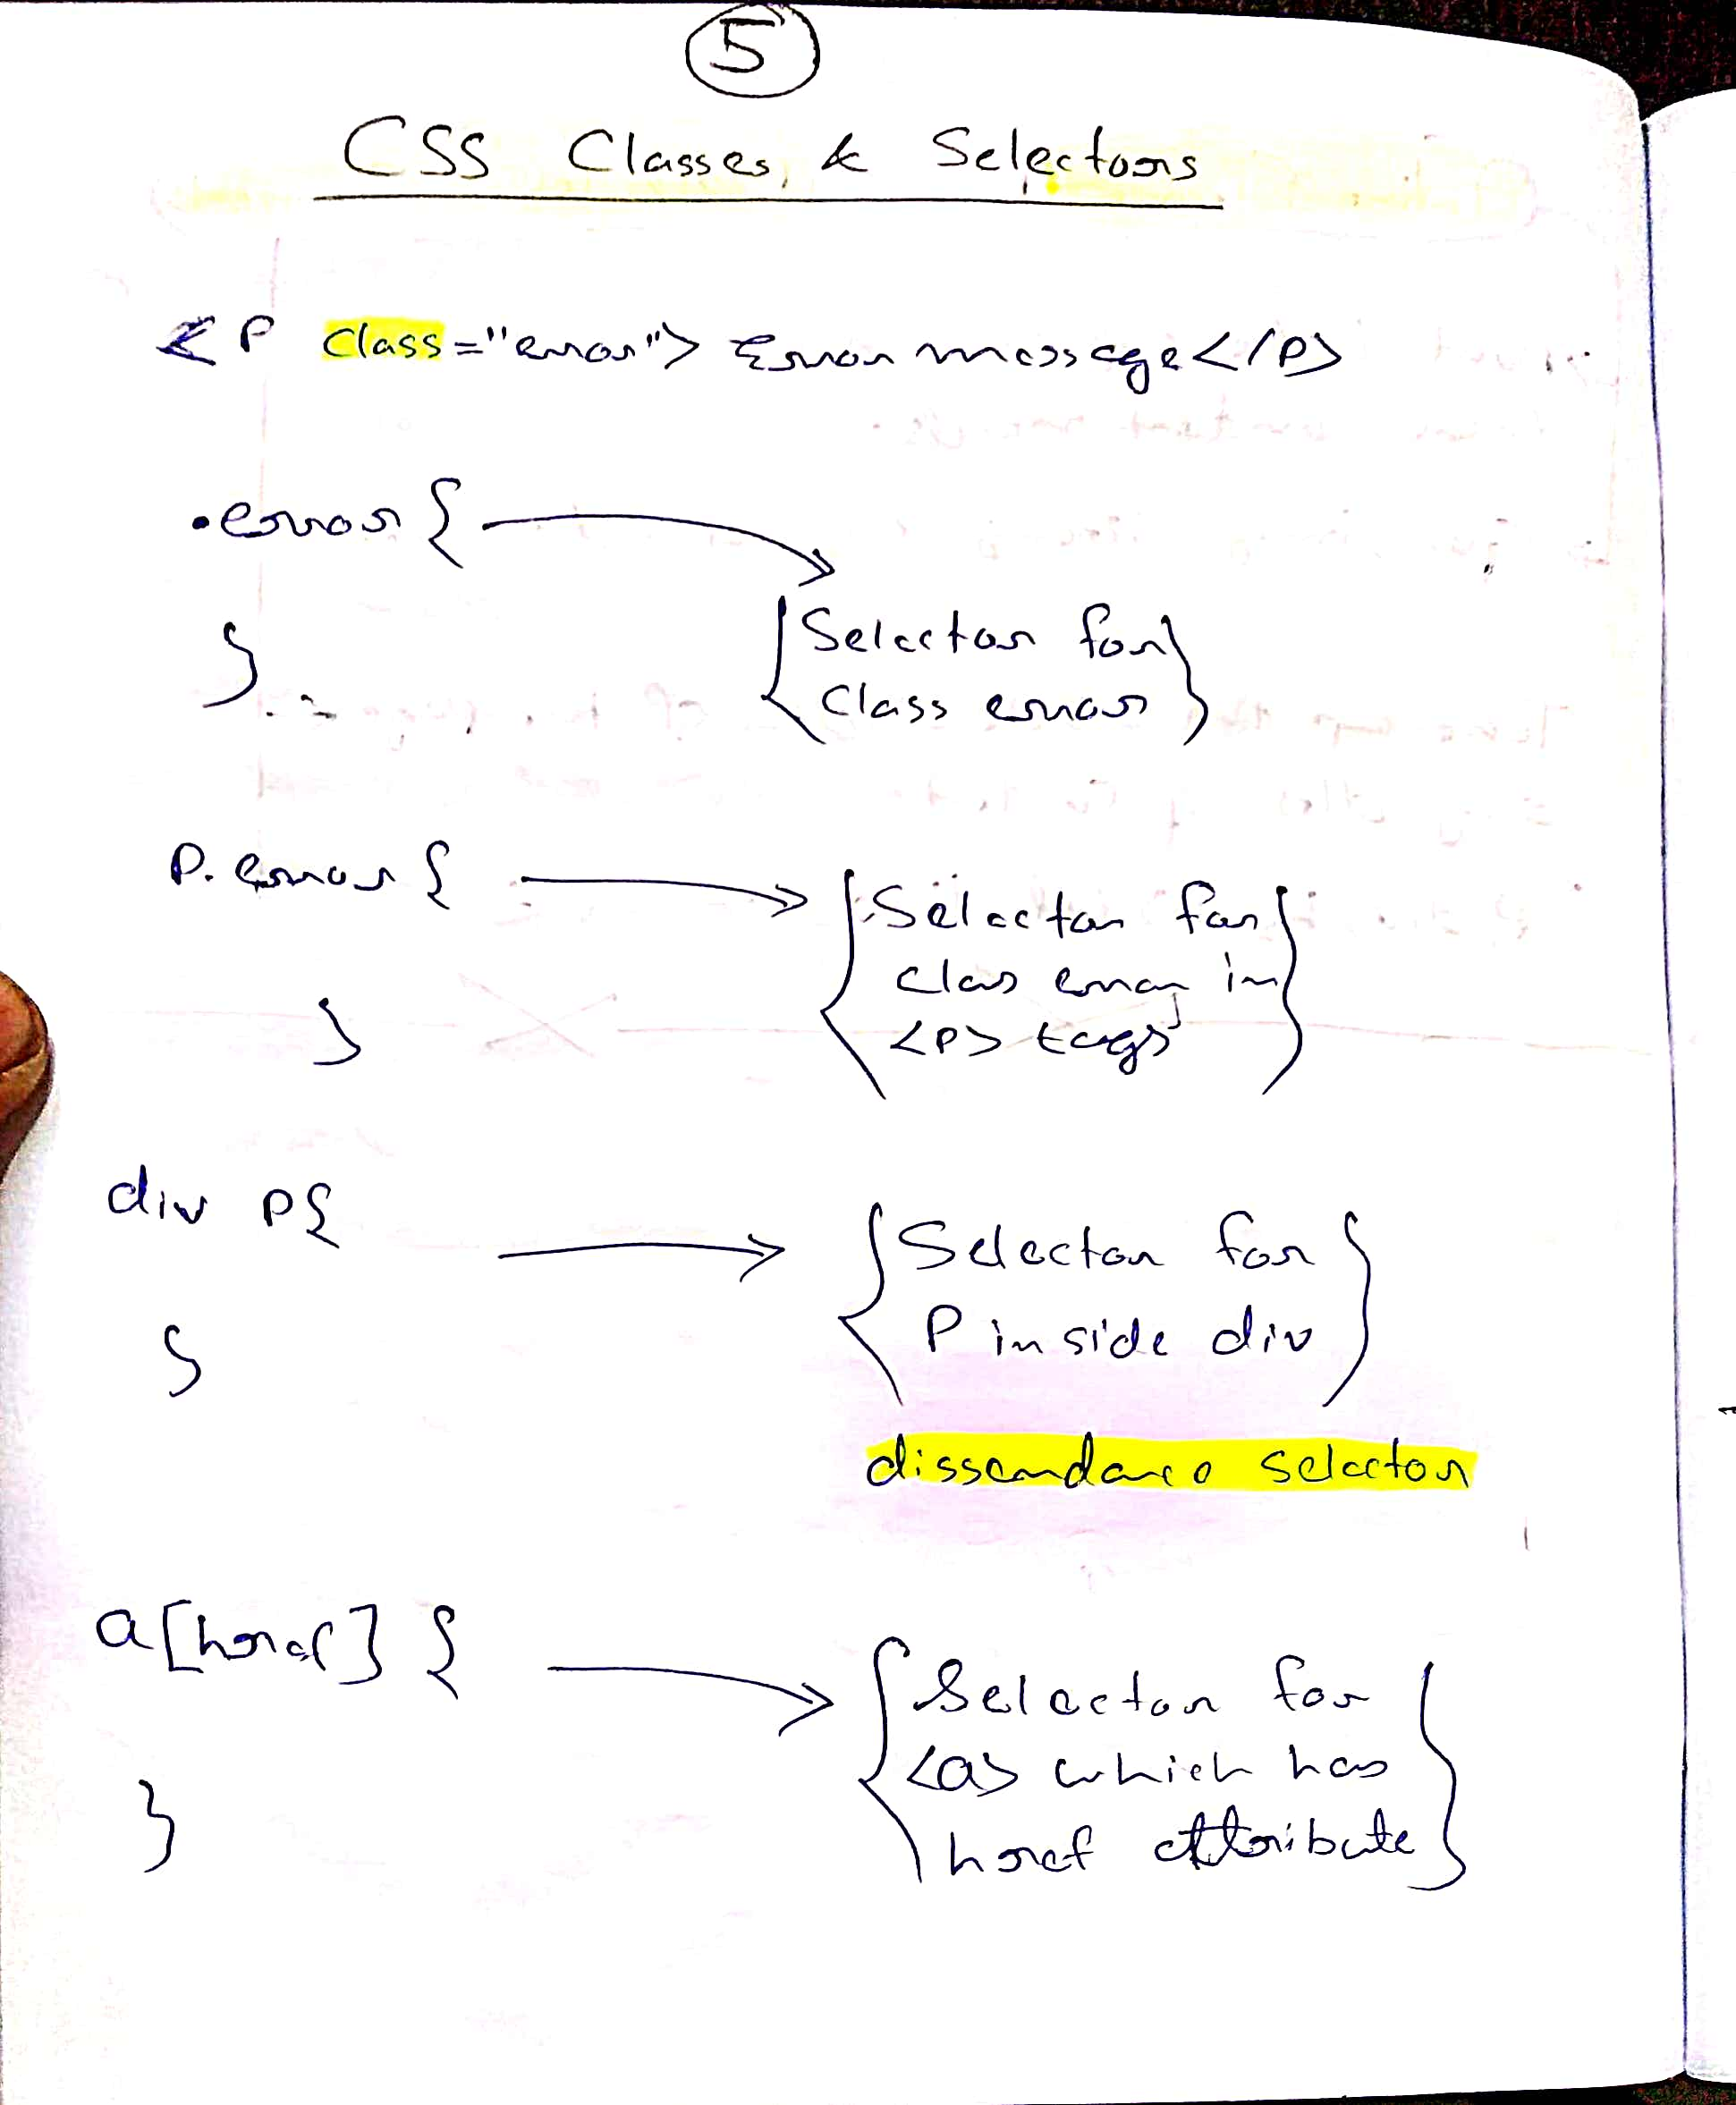 5
CSS Classes, & Selectors
<P class="error"> Error message</P>
.error {
}
Selector for
Class error
P. error {
}
Selector for
clas error in
<P> tags
div P{
}
Selector for
P inside div
dissendance selector
a[href] {
}
Selector for
<a> which has
href attribute